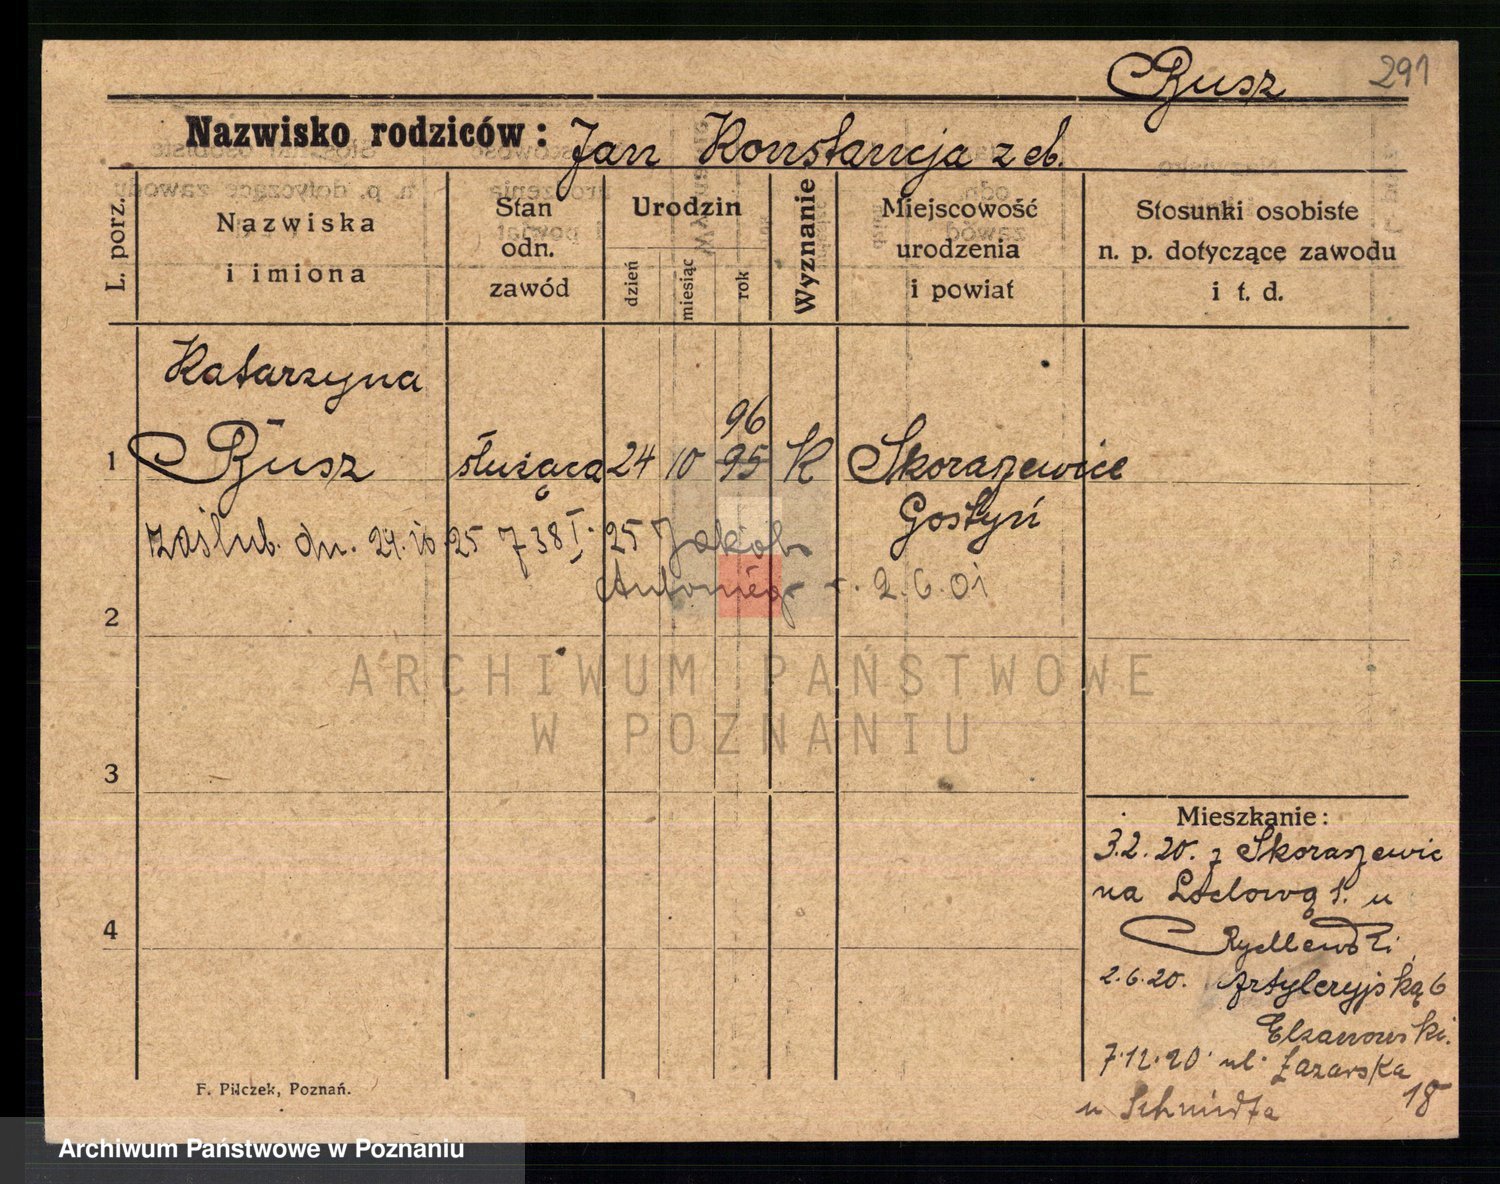 Busz 291
Nazwisko rodziców: Jan Konstancja z d.
L. porz.
Nazwiska
i imiona
Stan
odn.
zawód
Urodzin
dzień
miesiąc
rok
Wyznanie
Miejscowość
urodzenia
i powiat
Stosunki osobiste
n. p. dotyczące zawodu
i t. d.
Katarzyna
96
1 Busz służąca 24 10 95 K Skoraszewice
Gostyń
zaślub. dn. 24.10.25 738 I. 25 Jakób
2.6.01
2
ARCHIWUM PAŃSTWOWE
W POZNANIU
3
4
Mieszkanie:
3.2.20. z Skoraszewic
na Lodową 1. u
Rydlewski
2.6.20. Artyleryjską 6
Elzanowski.
7.12.20 ul. Łazarska
18
u Schmidta
F. Pilczek, Poznań.
Archiwum Państwowe w Poznaniu